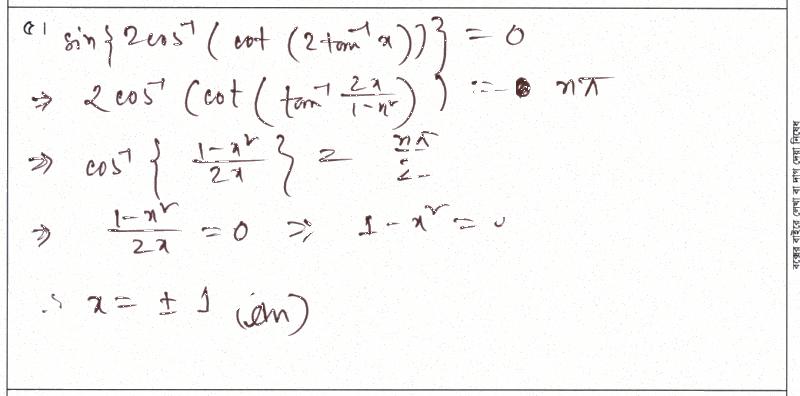 sin{2cos⁻¹(cot(2tan⁻¹x))} = 0
⇒ 2cos⁻¹(cot(tan⁻¹ 2x/(1-x²))) = nπ
⇒ cos⁻¹{(1-x²)/2x} = nπ/2
⇒ (1-x²)/2x = 0 ⇒ 1-x² = 0
∴ x = ±1
বক্সের বাইরে লেখা বা দাগ দেয়া নিষেধ